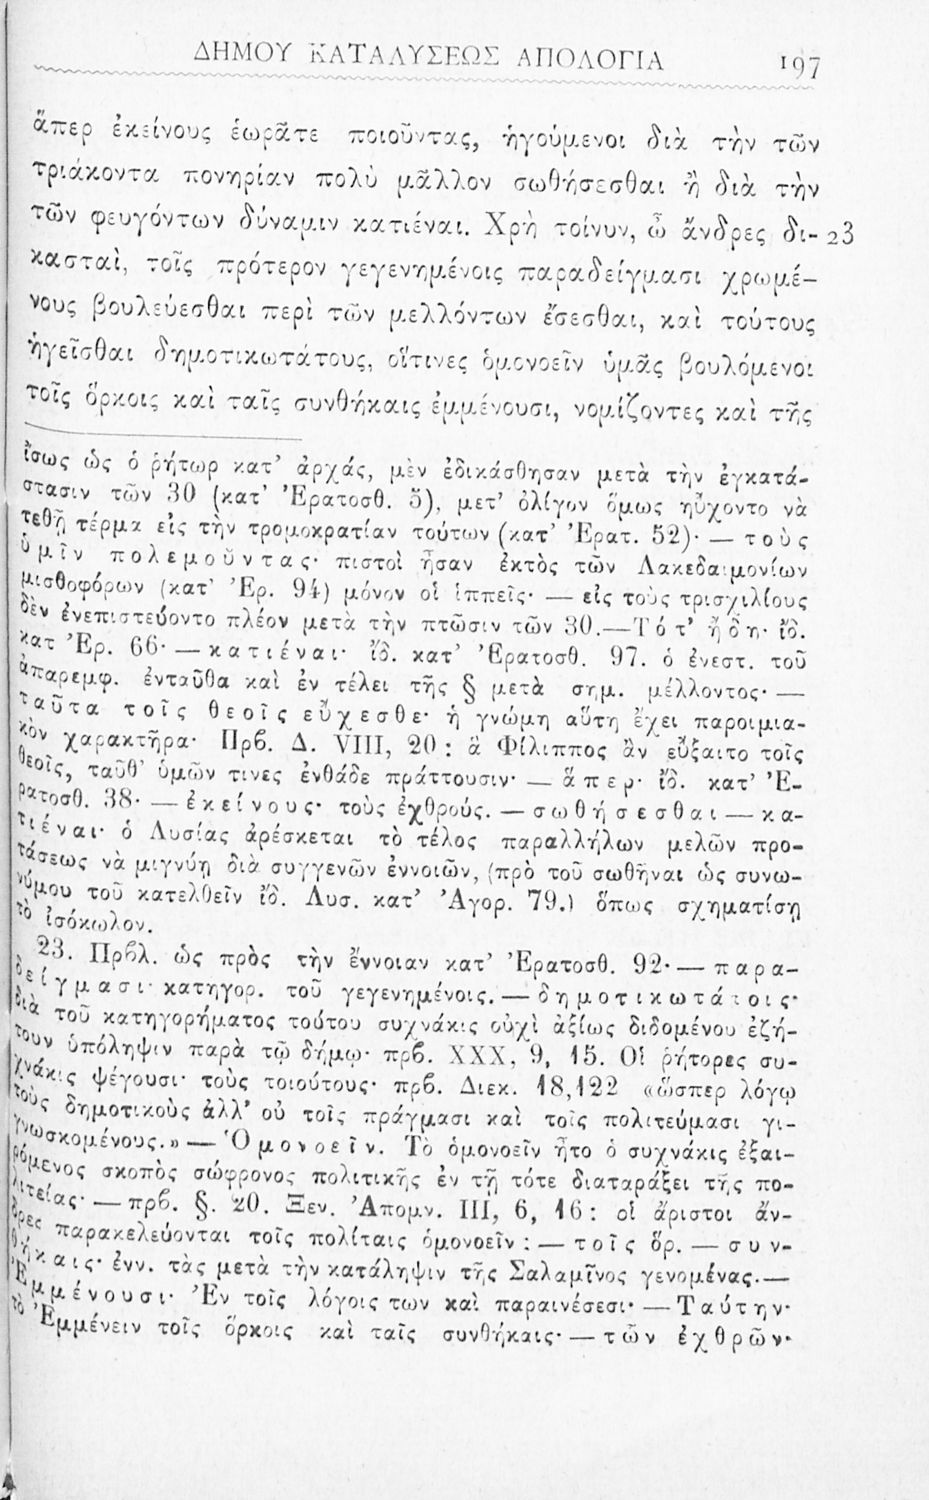 ΔΗΜΟΥ ΚΑΤΑΛΥΣΕΩΣ ΑΠΟΛΟΓΙΑ 197
ἅπερ ἐκείνους ἑωρᾶτε ποιοῦντας, ἡγούμενοι διὰ τὴν τῶν
τριάκοντα πονηρίαν πολὺ μᾶλλον σωθήσεσθαι ἢ διὰ τὴν
τῶν φευγόντων δύναμιν κατιέναι. Χρὴ τοίνυν, ὦ ἄνδρες δι- 23
κασταί, τοῖς πρότερον γεγενημένοις παραδείγμασι χρωμέ-
νους βουλεύεσθαι περὶ τῶν μελλόντων ἔσεσθαι, καὶ τούτους
ἡγεῖσθαι δημοτικωτάτους, οἵτινες ὁμονοεῖν ὑμᾶς βουλόμενοι
τοῖς ὅρκοις καὶ ταῖς συνθήκαις ἐμμένουσι, νομίζοντες καὶ τῆς
ἴσως ὡς ὁ ῥήτωρ κατ' ἀρχάς, μὲν ἐδικάσθησαν μετὰ τὴν ἐγκατά-
στασιν τῶν 30 (κατ' Ἐρατοσθ. 5), μετ' ὀλίγον ὅμως ηὔχοντο νὰ
τεθῇ τέρμα εἰς τὴν τρομοκρατίαν τούτων (κατ' Ἐρατ. 52)· — τοὺς
ὑμῖν πολεμοῦντας· πιστοὶ ἦσαν ἐκτὸς τῶν Λακεδαιμονίων
μισθοφόρων (κατ' Ἐρ. 94) μόνον οἱ ἱππεῖς· — εἰς τοὺς τρισχιλίους
δὲν ἐνεπιστεύοντο πλέον μετὰ τὴν πτῶσιν τῶν 30.—Τότ' ἤδη· ἴδ.
κατ Ἐρ. 66· — κατιέναι· ἴδ. κατ' Ἐρατοσθ. 97. ὁ ἐνεστ. τοῦ
ἀπαρεμφ. ἐνταῦθα καὶ ἐν τέλει τῆς § μετὰ σημ. μέλλοντος· —
ταῦτα τοῖς θεοῖς εὔχεσθε· ἡ γνώμη αὕτη ἔχει παροιμια-
κὸν χαρακτῆρα· Πρβ. Δ. VIII, 20 : ἃ Φίλιππος ἂν εὔξαιτο τοῖς
θεοῖς, ταῦθ' ὑμῶν τινες ἐνθάδε πράττουσιν· — ἅπερ· ἴδ. κατ' Ἐ-
ρατοσθ. 38· — ἐκείνους· τοὺς ἐχθρούς. — σωθήσεσθαι — κα-
τιέναι· ὁ Λυσίας ἀρέσκεται τὸ τέλος παραλλήλων μελῶν προ-
τάσεως νὰ μιγνύῃ διὰ συγγενῶν ἐννοιῶν, (πρὸ τοῦ σωθῆναι ὡς συνω-
νύμου τοῦ κατελθεῖν ἴδ. Λυσ. κατ' Ἀγορ. 79.) ὅπως σχηματίσῃ
τὸ ἰσόκωλον.
23. Πρβλ. ὡς πρὸς τὴν ἔννοιαν κατ' Ἐρατοσθ. 92· — παρα-
δείγμασι· κατηγορ. τοῦ γεγενημένοις. — δημοτικωτάτοις·
διὰ τοῦ κατηγορήματος τούτου συχνάκις οὐχὶ ἀξίως διδομένου ἐζή-
τουν ὑπόληψιν παρὰ τῷ δήμῳ· πρβ. XXX, 9, 15. Οἱ ῥήτορες συ-
χνάκις ψέγουσι· τοὺς τοιούτους· πρβ. Διεκ. 18,122 «ὥσπερ λόγῳ
τοὺς δημοτικοὺς ἀλλ' οὐ τοῖς πράγμασι καὶ τοῖς πολιτεύμασι γι-
γνωσκομένους.» — Ὁμονοεῖν. Τὸ ὁμονοεῖν ἦτο ὁ συχνάκις ἐξαι-
ρόμενος σκοπὸς σώφρονος πολιτικῆς ἐν τῇ τότε διαταράξει τῆς πο-
λιτείας· — πρβ. §. 20. Ξεν. Ἀπομν. III, 6, 16 : οἱ ἄριστοι ἄν-
δρες παρακελεύονται τοῖς πολίταις ὁμονοεῖν : — τοῖς ὅρ. — συν-
θήκαις· ἐνν. τὰς μετὰ τὴν κατάληψιν τῆς Σαλαμῖνος γενομένας.—
Ἐμμένουσι· Ἐν τοῖς λόγοις των καὶ παραινέσεσι· — Ταύτην·
τὸ Ἐμμένειν τοῖς ὅρκοις καὶ ταῖς συνθήκαις· — τῶν ἐχθρῶν·